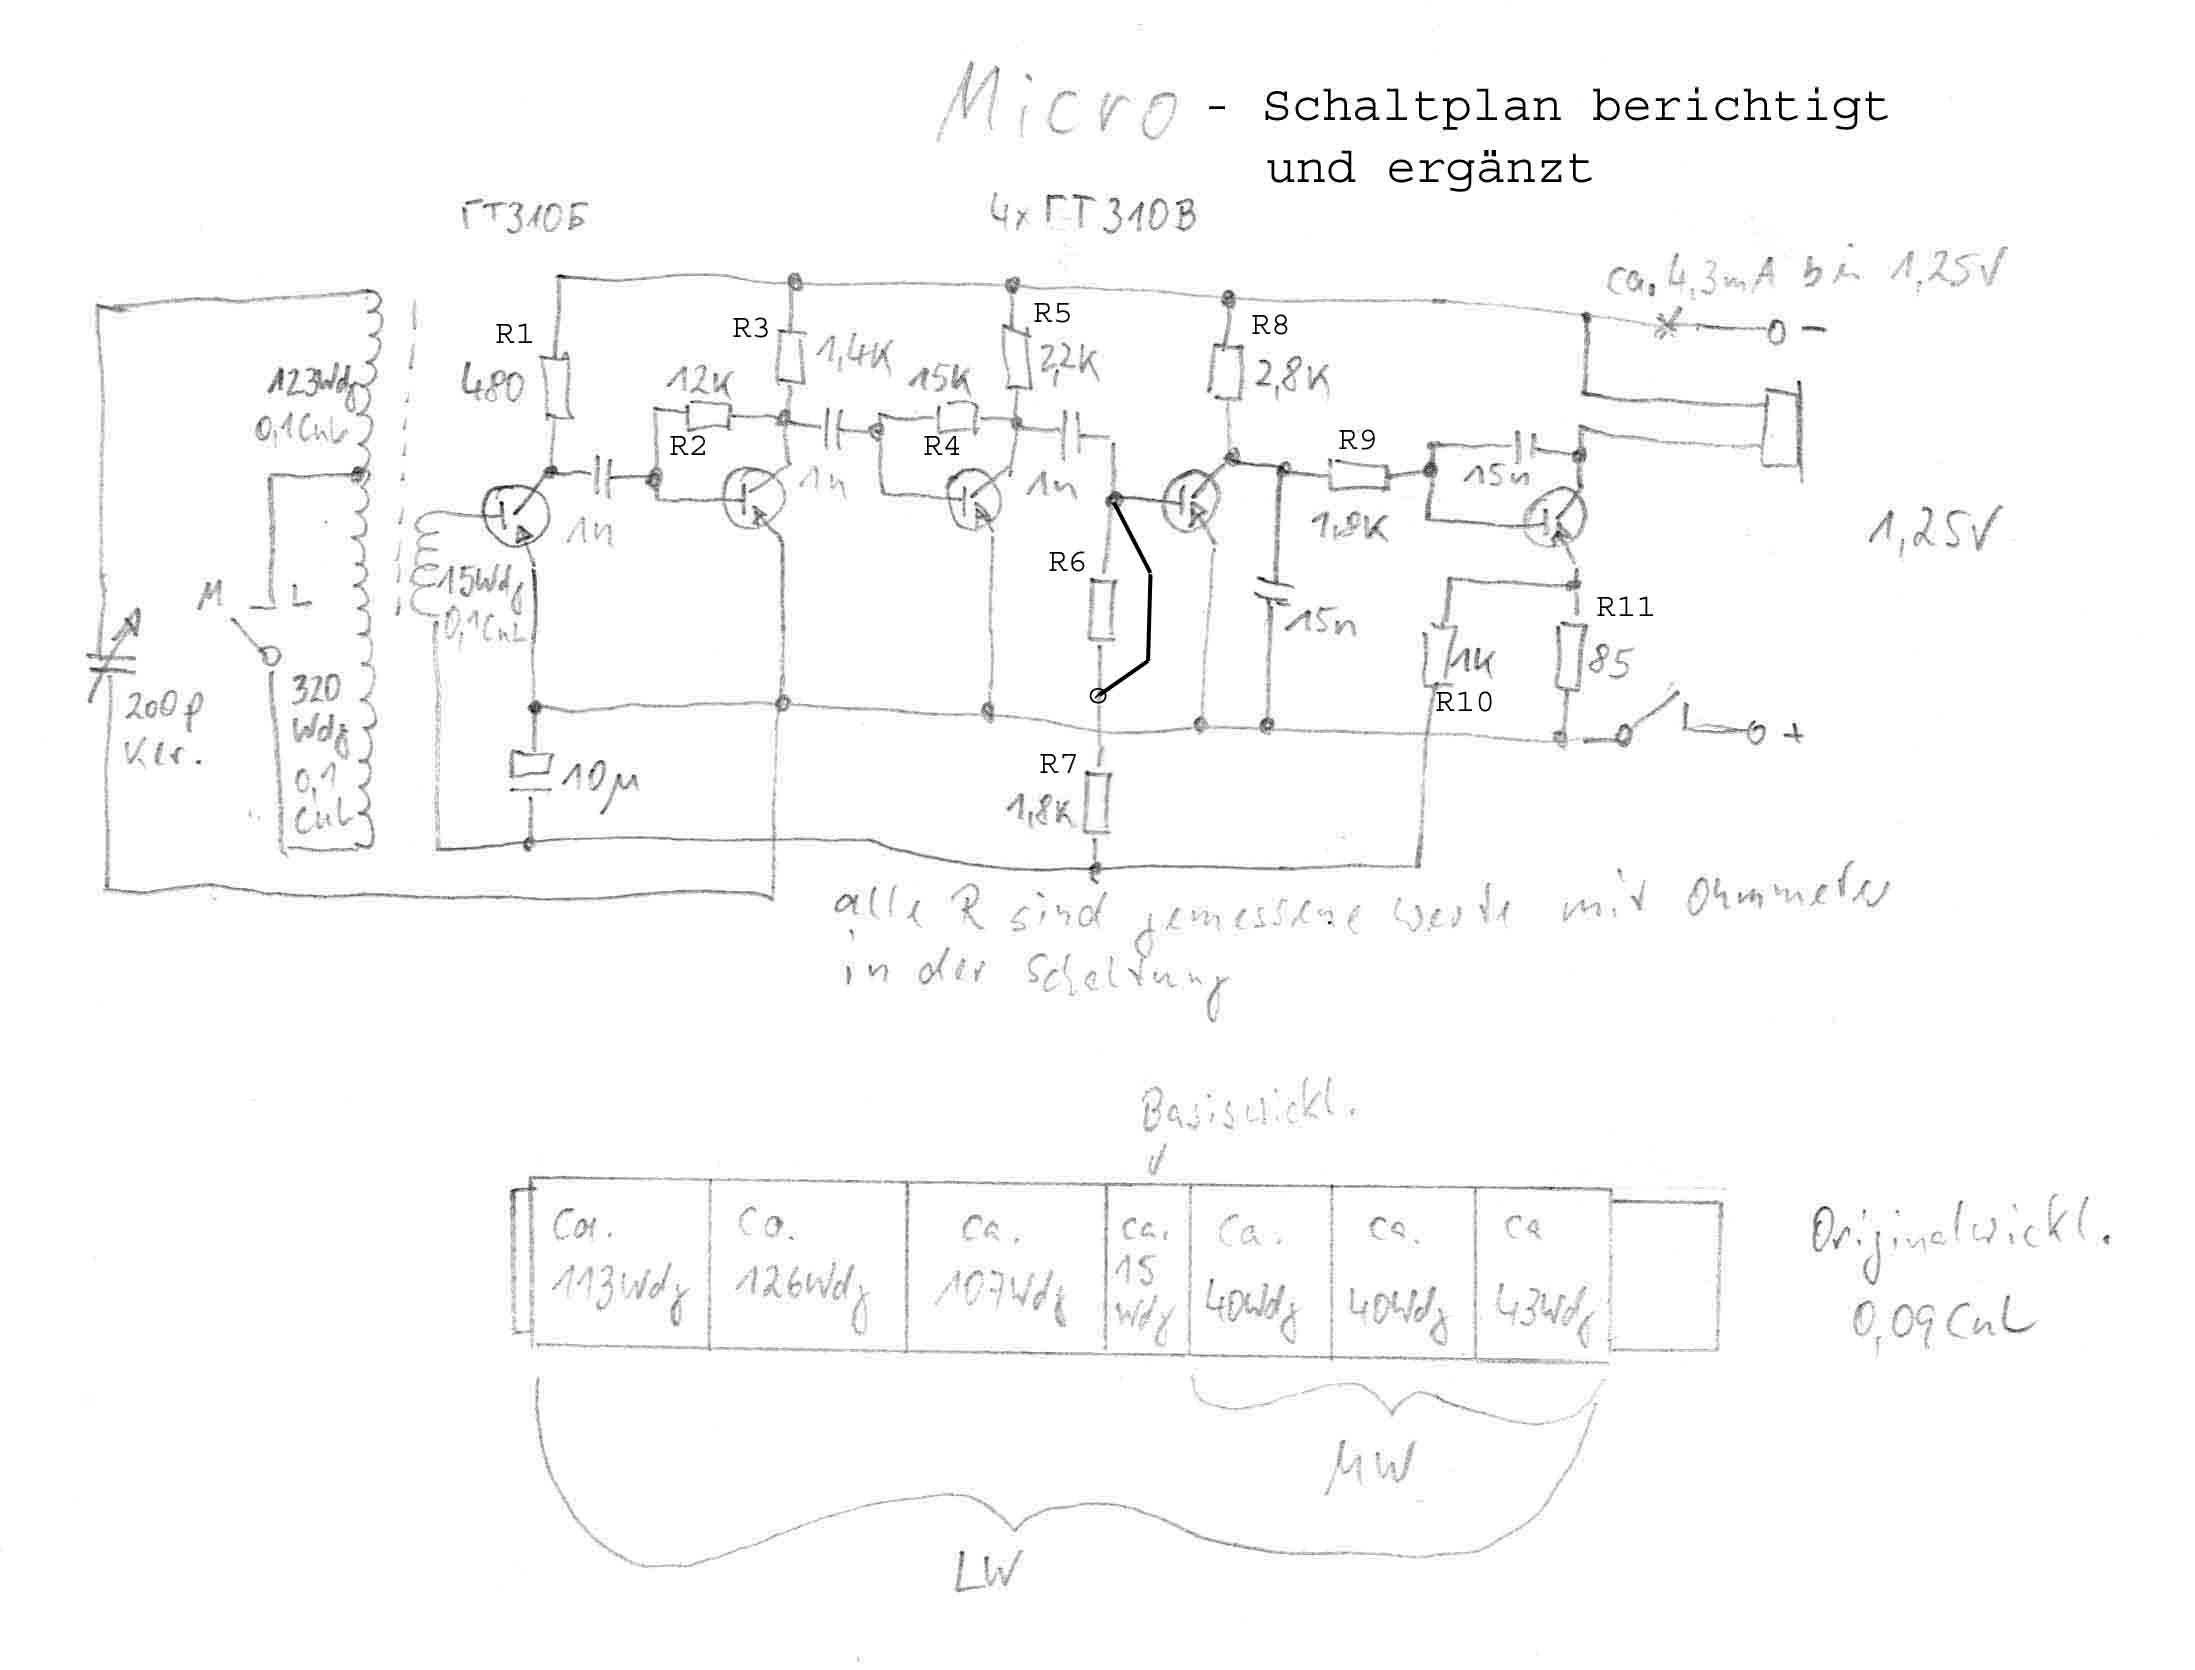 Micro - Schaltplan berichtigt
und ergänzt
ГТ310Б
4x ГТ310В
ca. 4,3mA bei 1,25V
R1
480
R3
1,4K
R5
2,2K
R8
2,8K
123Wdg
0,1CuL
12K
R2
15K
R4
1n
1n
1n
R9
1,8K
15n
1,25V
15Wdg
0,1CuL
M
L
R6
15n
R11
85
1K
R10
200p
Ker.
320
Wdg
0,1
CuL
10µ
R7
1,8K
-
+
alle R sind gemessene Werte mit Ohmmeter
in der Schaltung
Basiswickl.
Ca.
113Wdg
Ca.
126Wdg
ca.
107Wdg
ca.
15
Wdg
Ca.
40Wdg
ca.
40Wdg
ca
43Wdg
Originalwickl.
0,09CuL
MW
LW